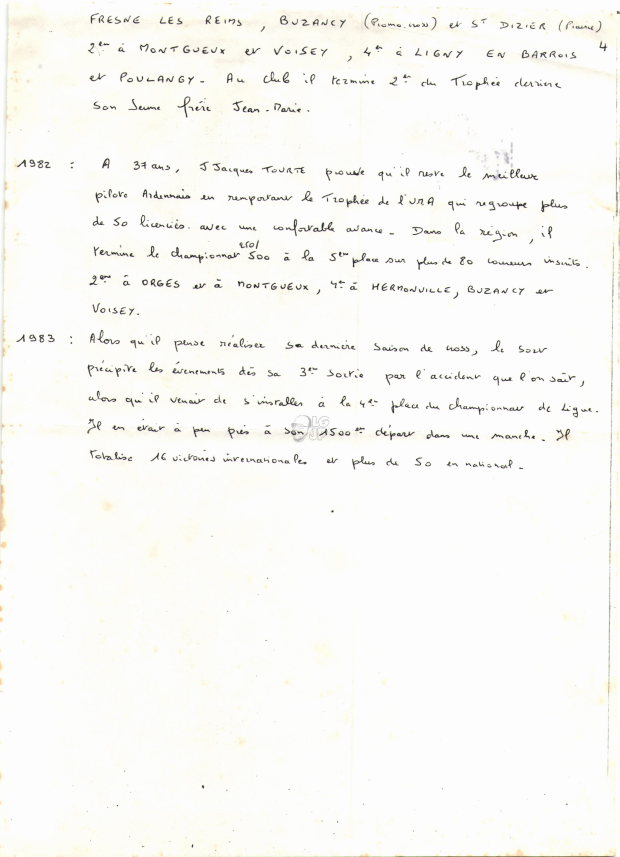 FRESNE LES REIMS, BUZANCY (Promo.cross) et St DIZIER (Prairie)
4
2ème à MONTGUEUX et VOISEY, 4ème à LIGNY EN BARROIS
et POULANGY - Au Club il termine 2ème du Trophée derrière
son Jeune frère Jean-Marie.
1982 : A 37 ans, J Jacques TOURTE prouve qu'il reste le meilleur
pilote Ardennais en remportant le Trophée de l'URA qui regroupe plus
de 50 licenciés. avec une confortable avance - Dans la région, il
termine le championnat 250/500 à la 5ème place sur plus de 80 coureurs inscrits.
2ème à ORGES et à MONTGUEUX, 4ème à HERMONVILLE, BUZANCY et
VOISEY.
1983 : Alors qu'il pense réaliser sa dernière saison de cross, le sort
précipite les évènements dès sa 3ème sortie par l'accident que l'on sait,
alors qu'il venait de s'installer à la 4ème place du championnat de Ligue.
Il en était à peu près à son 1500ème départ dans une manche - Il
totalise 16 victoires internationales et plus de 50 en national -